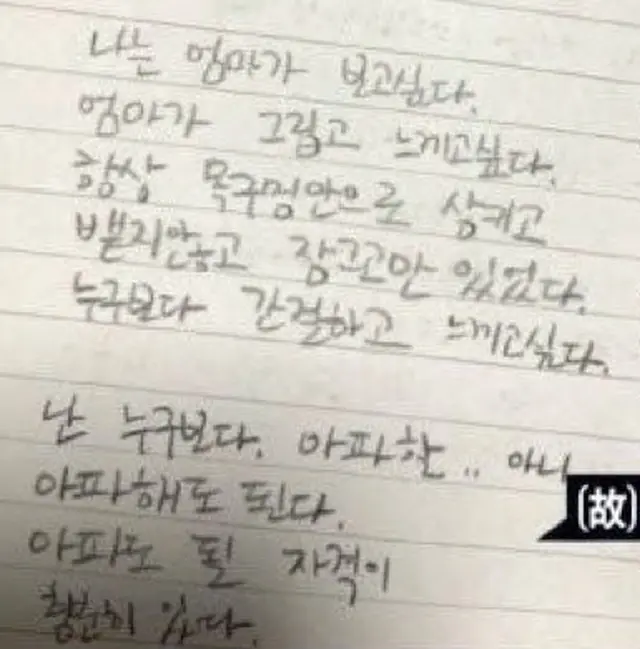 나는 엄마가 보고싶다.
엄마가 그립고 느끼고싶다.
항상 목구멍안으로 삼키고
뱉지않고 잠그고만 있었다.
누구보다 간절하고 느끼고싶다.
난 누구보다. 아파한.. 아니
아파해도 된다.
(故)
아파도 될 자격이
충분히 있다.